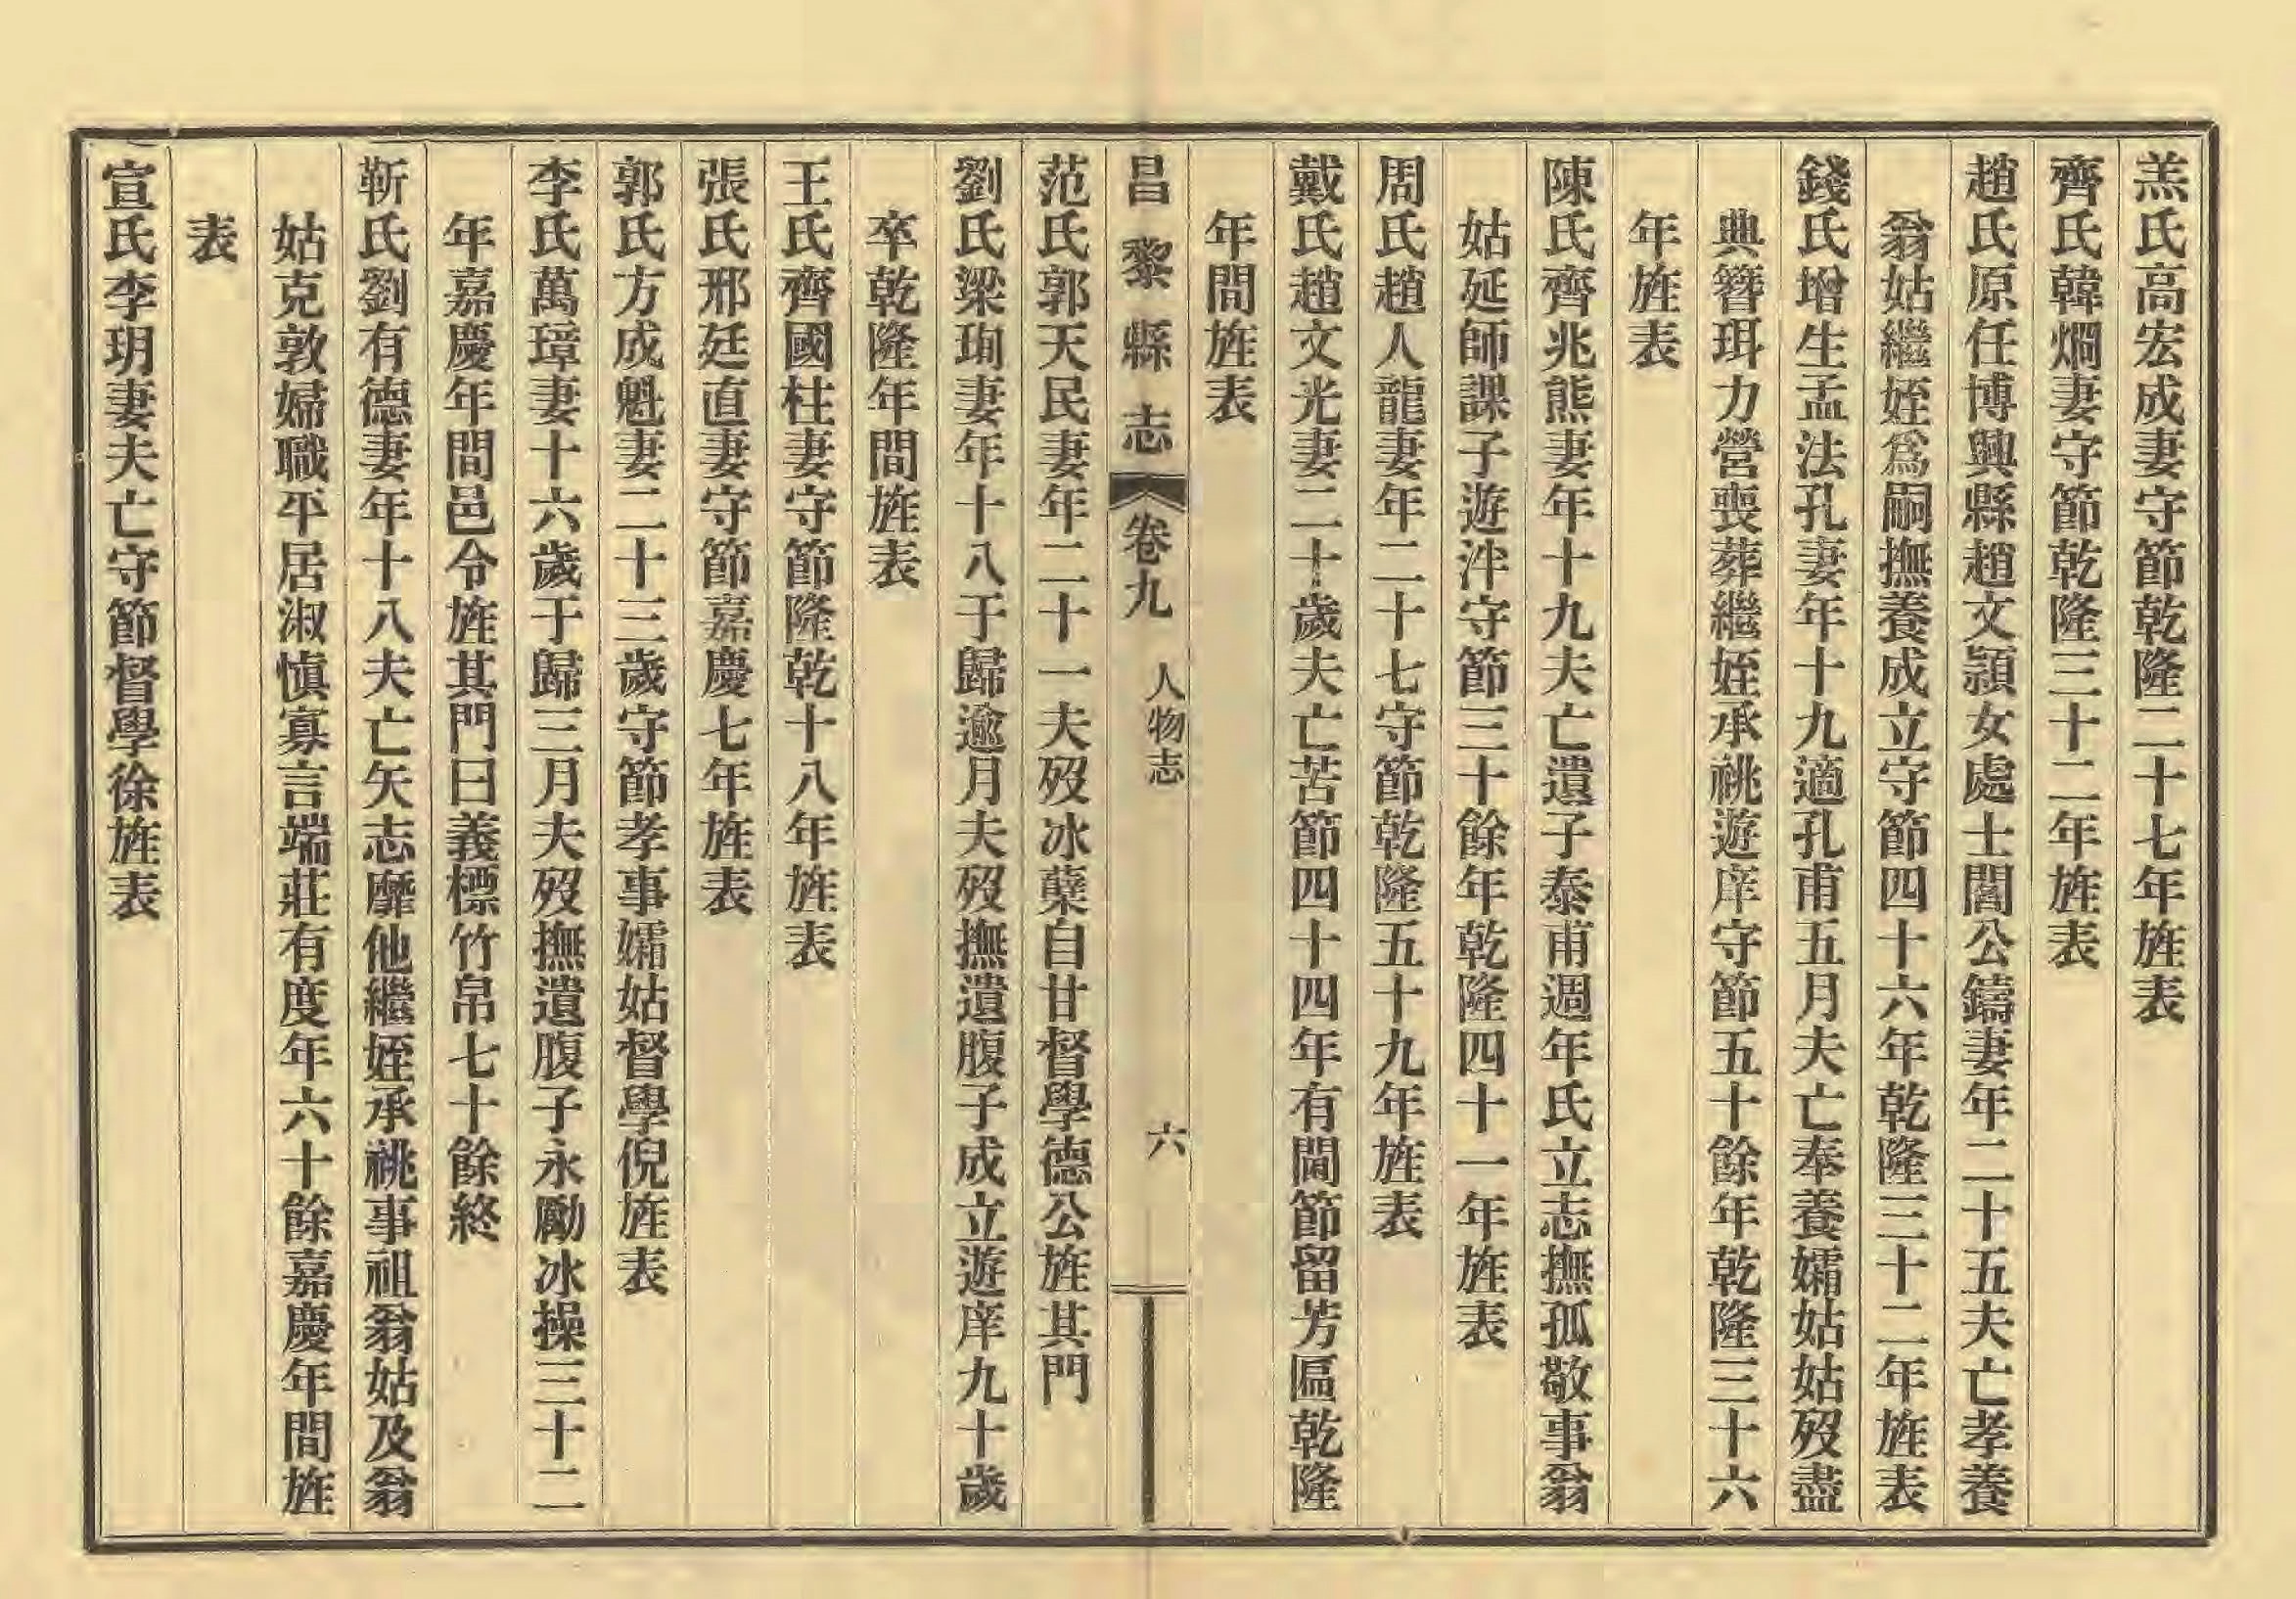 羔氏高宏成妻守節乾隆二十七年旌表
齊氏韓燗妻守節乾隆三十二年旌表
趙氏原任博興縣趙文頴女處士閻公鑄妻年二十五夫亡孝養
翁姑繼姪爲嗣撫養成立守節四十六年乾隆三十二年旌表
錢氏增生孟法孔妻年十九適孔甫五月夫亡奉養孀姑姑歿盡
典簪珥力營喪葬繼姪承祧遊庠守節五十餘年乾隆三十六
年旌表
陳氏齊兆熊妻年十九夫亡遺子泰甫週年氏立志撫孤敬事翁
姑延師課子遊泮守節三十餘年乾隆四十一年旌表
周氏趙人龍妻年二十七守節乾隆五十九年旌表
戴氏趙文光妻二十歲夫亡苦節四十四年有閫節留芳匾乾隆
年間旌表
昌黎縣志 卷九 人物志 六
范氏郭天民妻年二十一夫歿冰蘖自甘督學德公旌其門
劉氏梁珣妻年十八于歸逾月夫歿撫遺腹子成立遊庠九十歲
卒乾隆年間旌表
王氏齊國柱妻守節隆乾十八年旌表
張氏邢廷直妻守節嘉慶七年旌表
郭氏方成魁妻二十三歲守節孝事孀姑督學倪旌表
李氏萬璋妻十六歲于歸三月夫歿撫遺腹子永勵冰操三十二
年嘉慶年間邑令旌其門曰義標竹帛七十餘終
靳氏劉有德妻年十八夫亡矢志靡他繼姪承祧事祖翁姑及翁
姑克敦婦職平居淑慎寡言端莊有度年六十餘嘉慶年間旌
表
宣氏李玥妻夫亡守節督學徐旌表